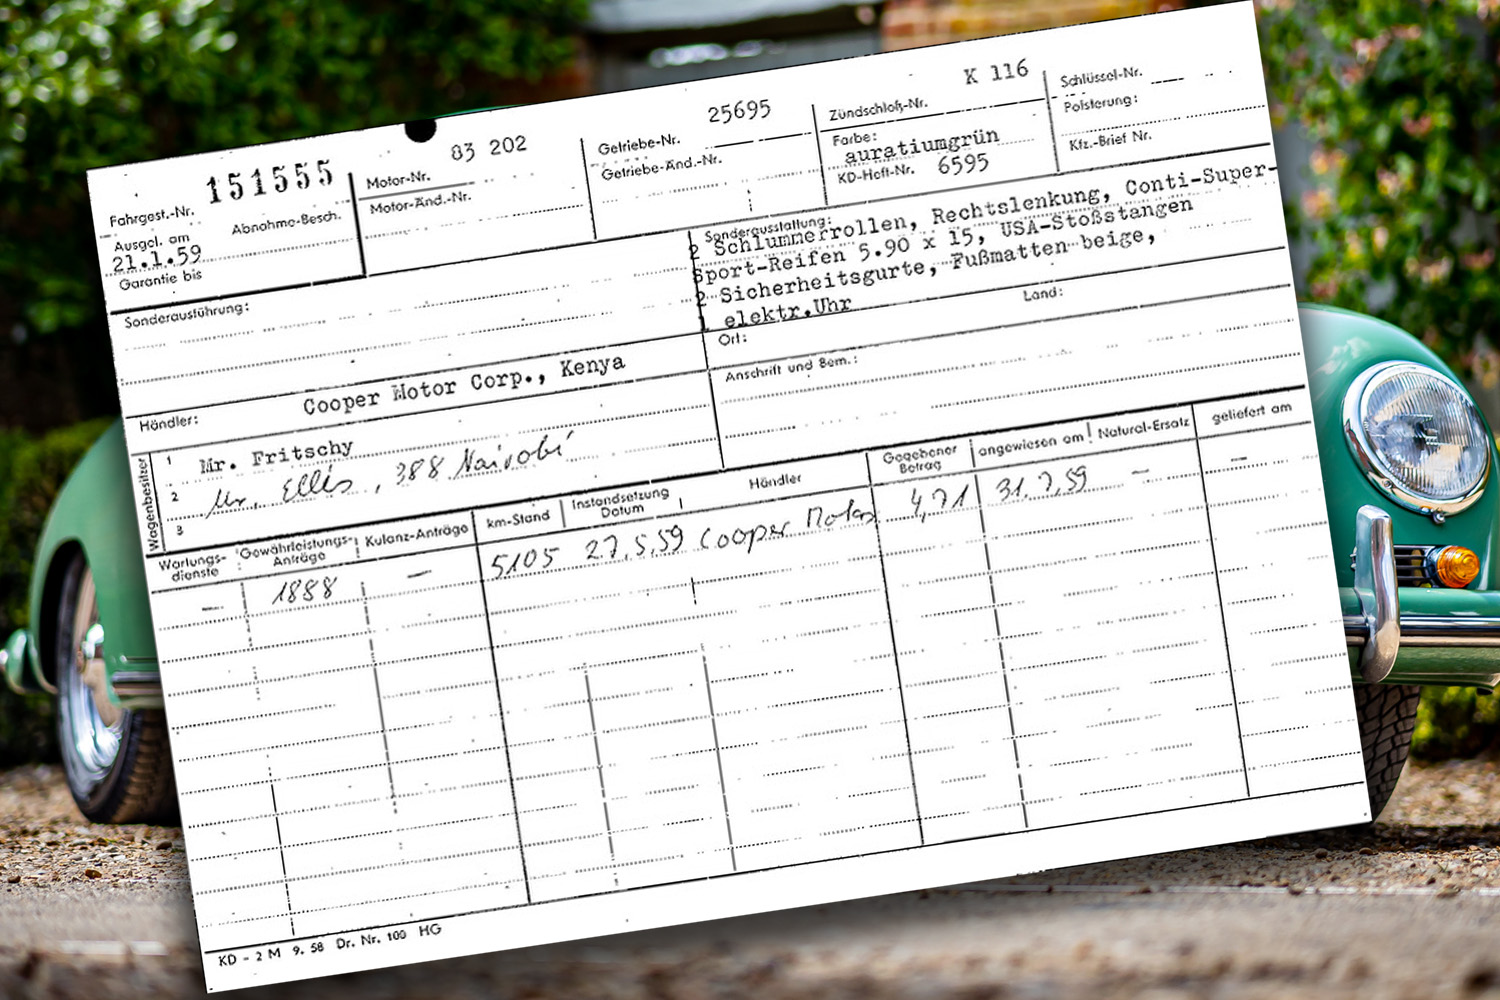 Fahrgest.-Nr. 151555
Ausgel. am Abnahme-Besch.
21.1.59
Garantie bis
Motor-Nr. 83 202
Motor-Änd.-Nr.
Getriebe-Nr. 25695
Getriebe-Änd.-Nr.
Zündschloß-Nr. K 116
Farbe:
auratiumgrün
KD-Heft-Nr. 6595
Schlüssel-Nr.
Polsterung:
Kfz.-Brief Nr.
Sonderausführung:
Sonderausstattung:
2 Schlummerrollen, Rechtslenkung, Conti-Super-
Sport-Reifen 5.90 x 15, USA-Stoßstangen
2 Sicherheitsgurte, Fußmatten beige,
1 elektr.Uhr
Händler: Cooper Motor Corp., Kenya
Ort: Land:
Anschrift und Bem.:
Wagenbesitzer
1 Mr. Fritschy
2 Mr. Ellis, 388 Nairobi
3
Wartungs-dienste Gewährleistungs-Anträge Kulanz-Anträge km-Stand Instandsetzung Datum Händler Gegebener Betrag angewiesen am Natural-Ersatz geliefert am
— 1888 — 5105 27.5.59 Cooper Motors 4,71 31.7.59 — —
KD - 2 M 9. 58 Dr. Nr. 100 HG